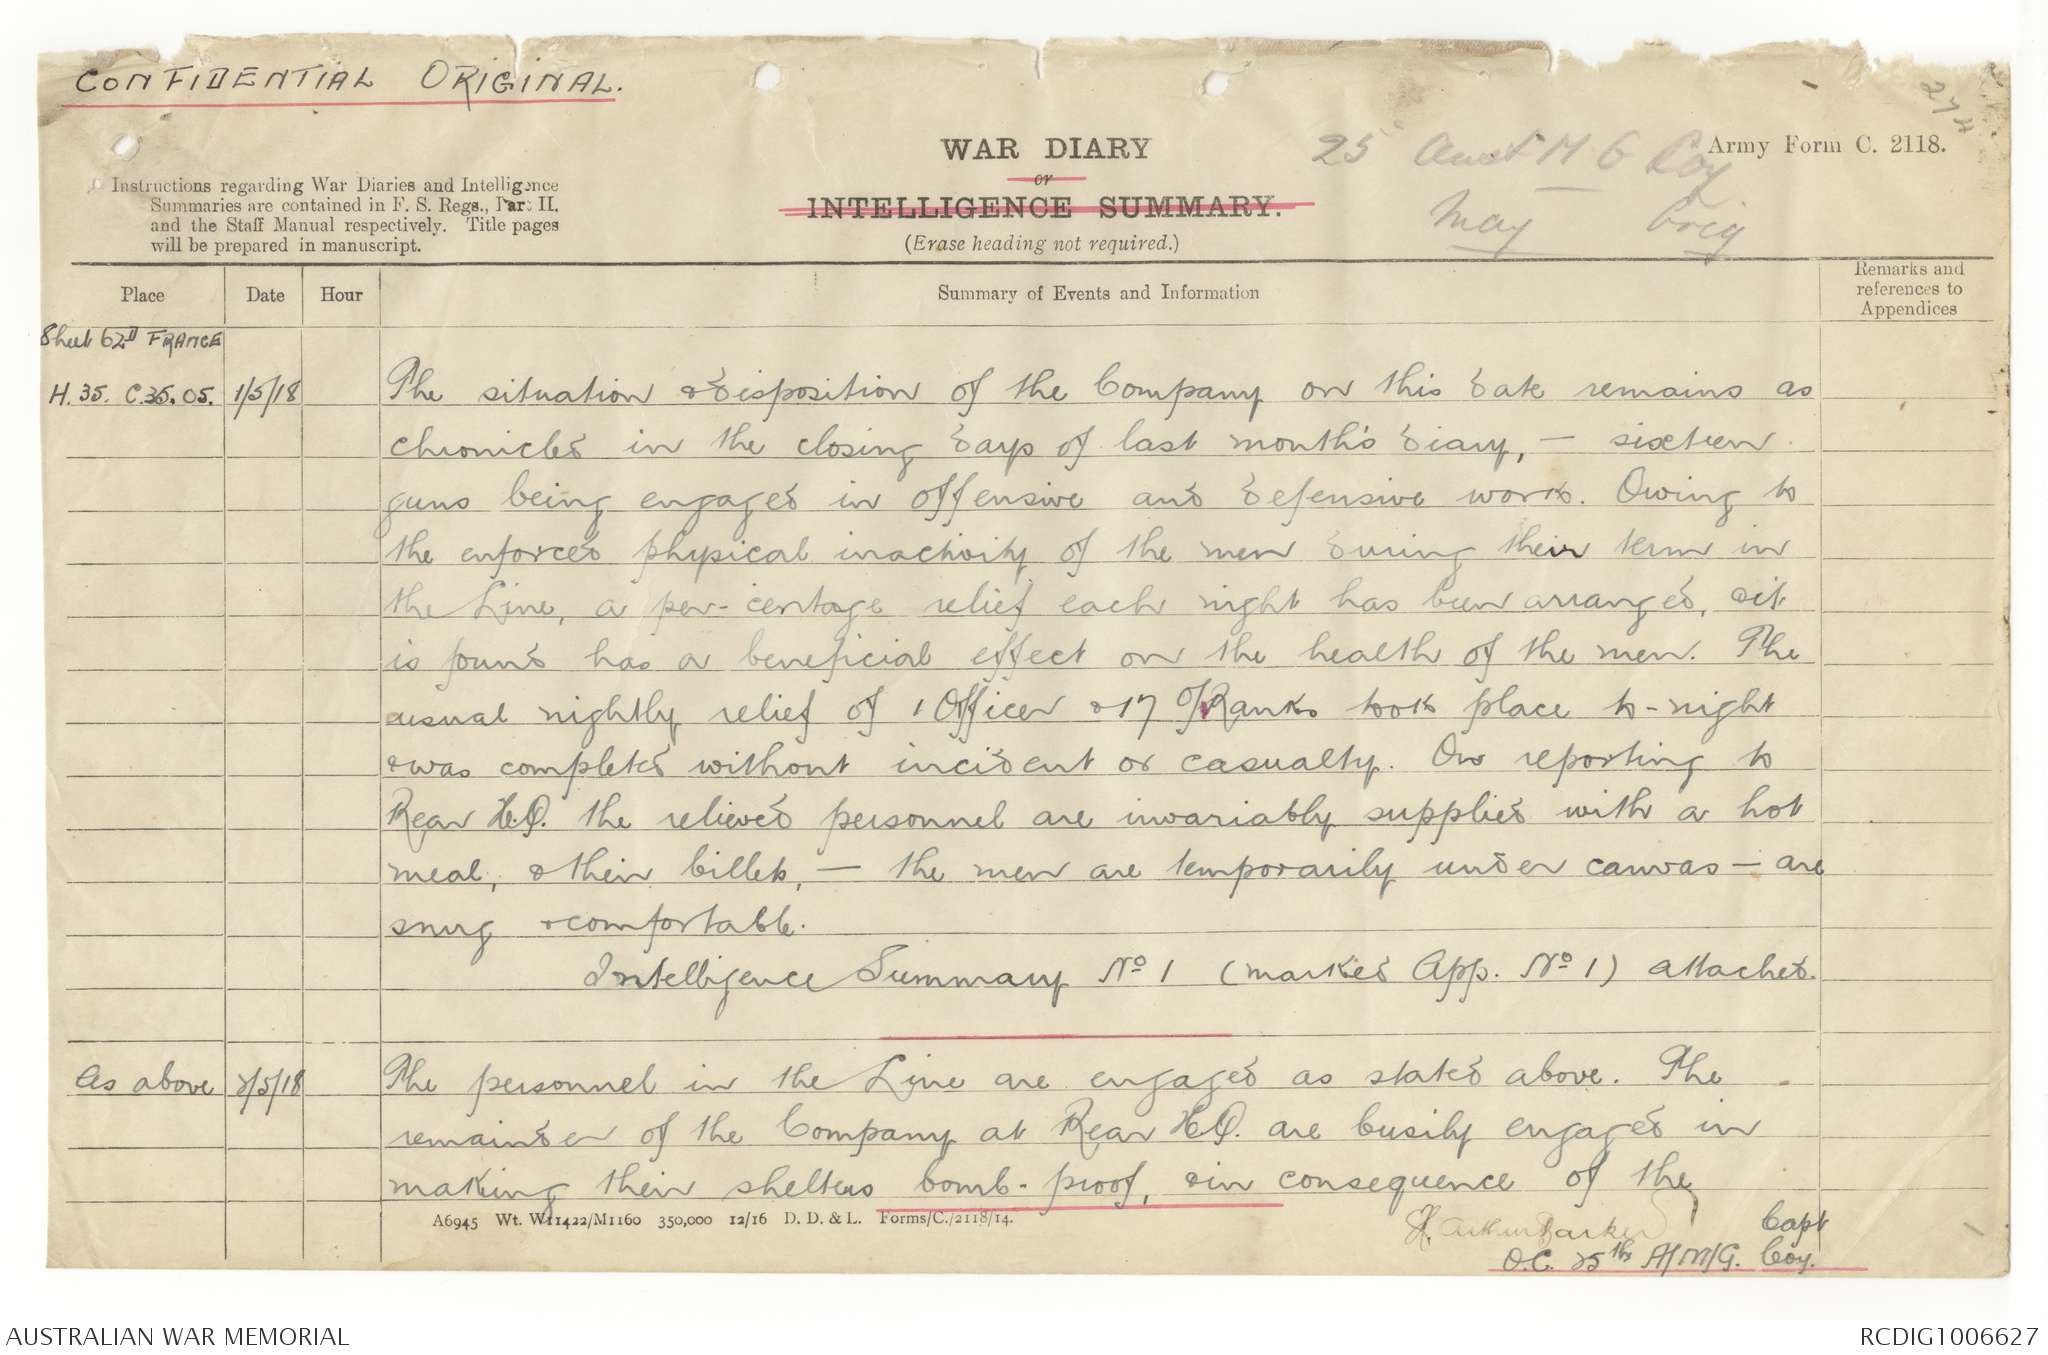 CONFIDENTIAL ORIGINAL.
274
WAR DIARY
or
INTELLIGENCE SUMMARY.
(Erase heading not required.)
25 Aust M G Coy
May Orig
Army Form C. 2118.
Instructions regarding War Diaries and Intelligence
Summaries are contained in F. S. Regs., Part II.
and the Staff Manual respectively. Title pages
will be prepared in manuscript.
Place Date Hour Summary of Events and Information Remarks and references to Appendices
Sheet 62D FRANCE
H. 35. C.35.05. 1/5/18 The situation & disposition of the Company on this date remains as
chronicled in the closing days of last month's diary, — sixteen
guns being engaged in offensive and defensive work. Owing to
the enforced physical inactivity of the men during their term in
the Line, a per-centage relief each night has been arranged, & it
is found has a beneficial effect on the health of the men. The
usual nightly relief of 1 Officer & 17 O/Ranks took place to-night
& was completed without incident or casualty. On reporting to
Rear H.Q. the relieved personnel are invariably supplied with a hot
meal, & their billets, — the men are temporarily under canvas — are
snug & comfortable.
Intelligence Summary No 1 (marked App. No 1) attached.
As above 2/5/18 The personnel in the Line are engaged as stated above. The
remainder of the Company at Rear H.Q. are busily engaged in
making their shelters bomb-proof, & in consequence of the
A6945 Wt. W11422/M1160 350,000 12/16 D. D. & L. Forms/C./2118/14.
Arthur Barker Capt
O.C. 25th A/M/G. Coy.
AUSTRALIAN WAR MEMORIAL
RCDIG1006627